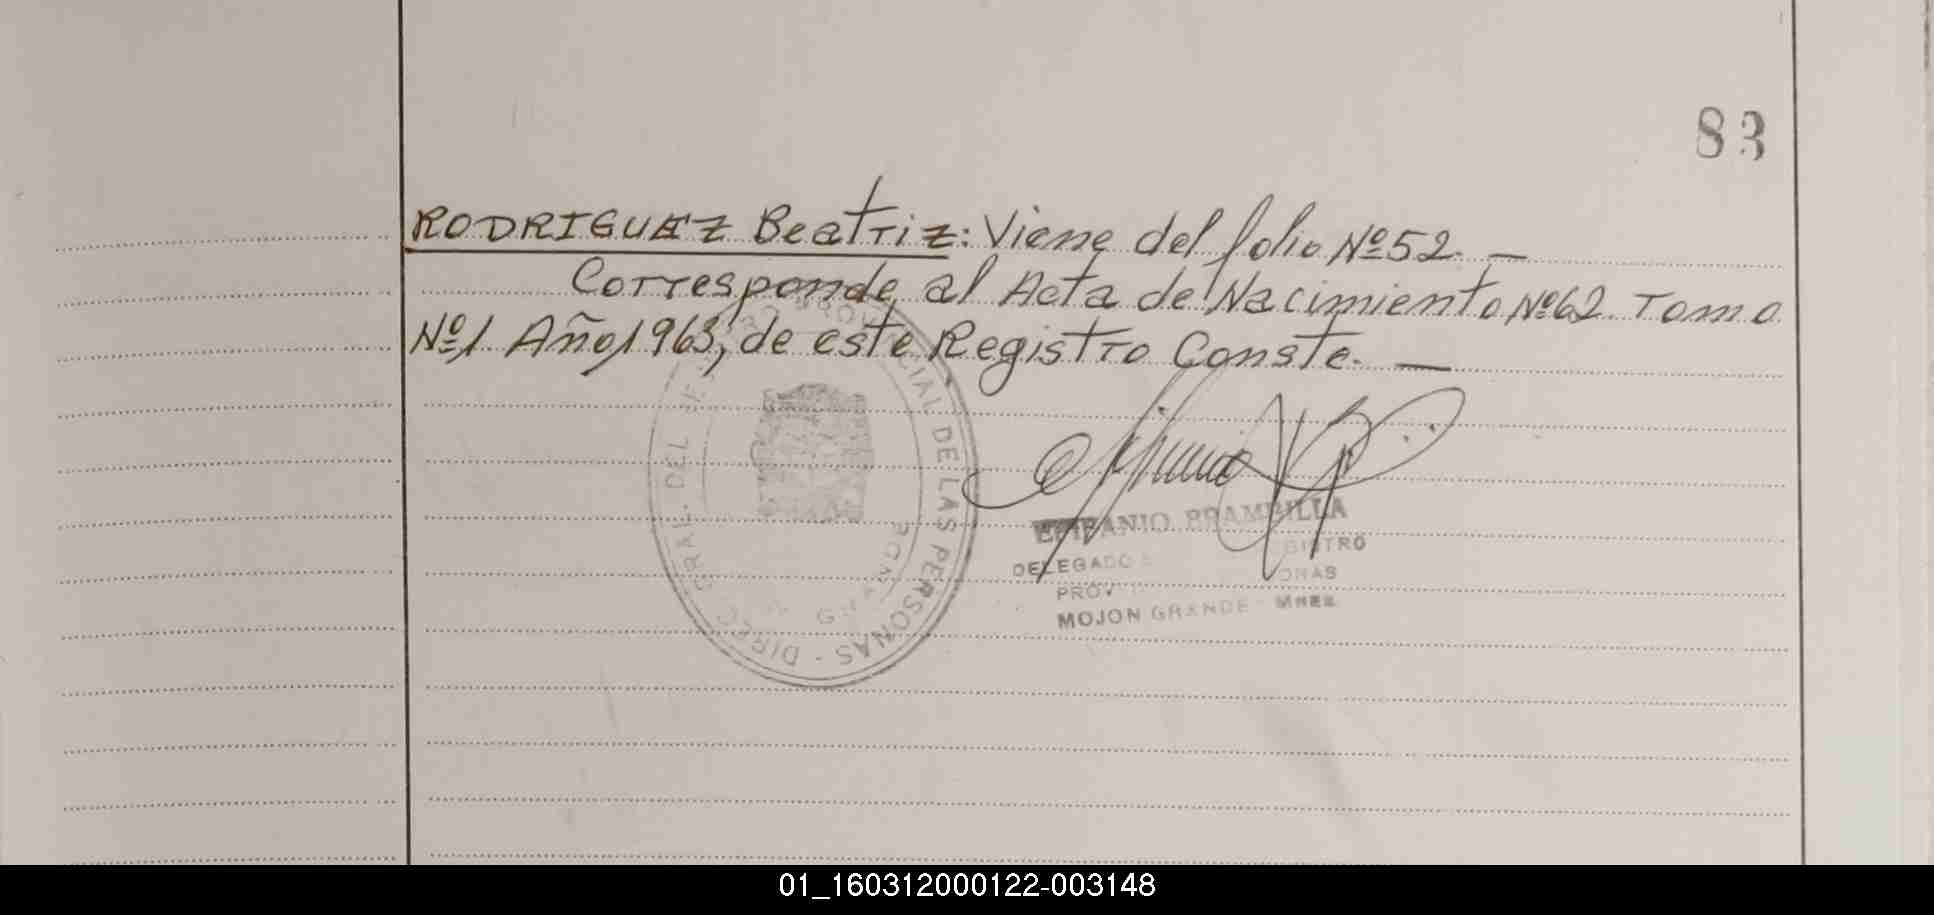 83
RODRIGUEZ Beatriz: Viene del folio Nº52. —
Corresponde al Acta de Nacimiento Nº62. Tomo
Nº1. Año, 1963, de este Registro Conste. —
PROVINCIAL DE LAS PERSONAS - DIREC. GRAL. DEL
EPIFANIO BRAMBILLA
DELEGADO
MOJON GRANDE - Mnes.
01_160312000122-003148